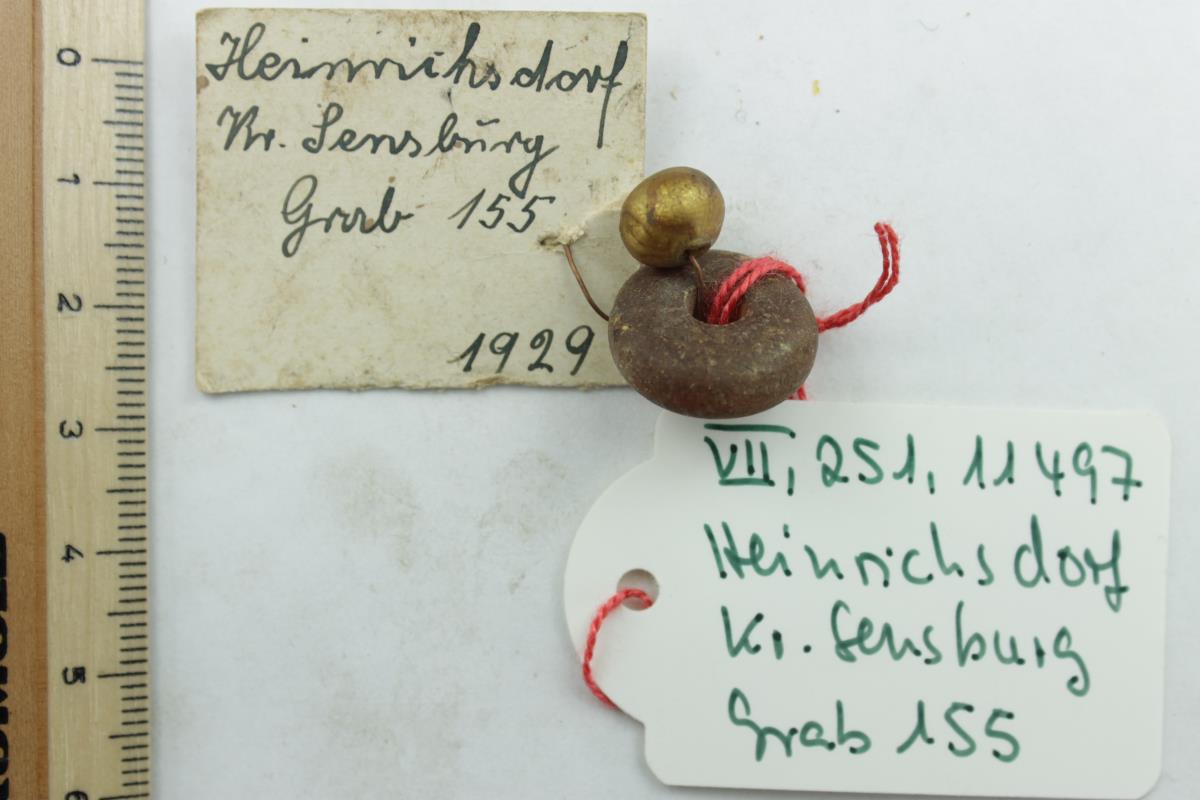 Heinrichsdorf
Kr. Sensbūrg
Grab 155
1929
VII, 251, 11497
Heinrichsdorf
Kr. Sensburg
Grab 155
0
1
2
3
4
5
6